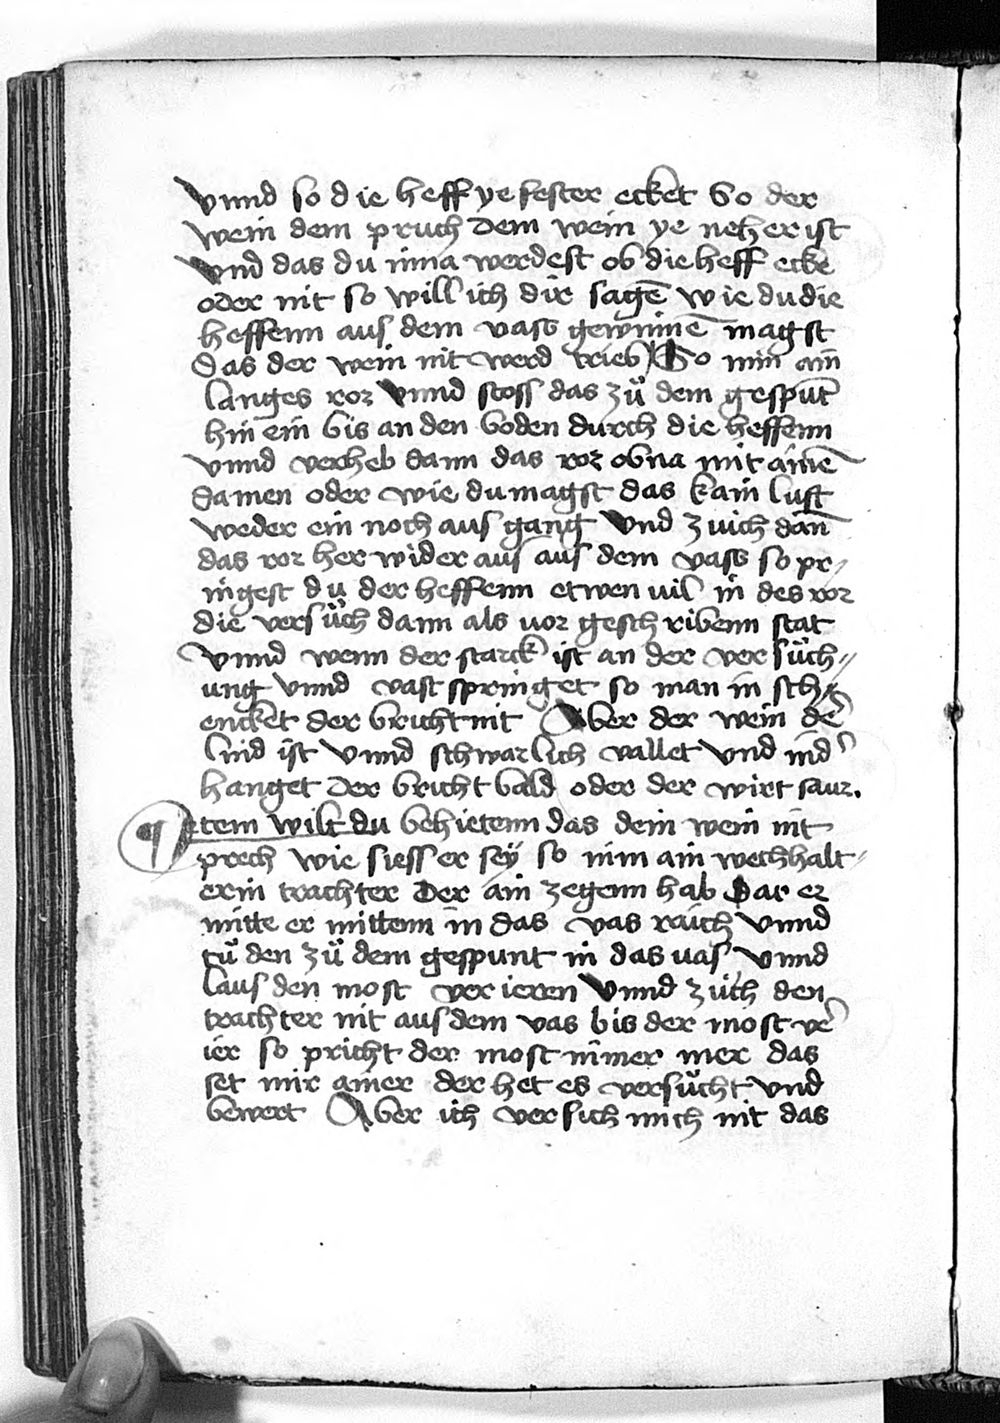 vnnd so die heff ye fester ecket So der
wein dem pruch dem wein ye neher ist
vnd das du inna werdest ob die heff ecke
oder nit so will ich dir sagē wie du die
heffenn aus dem vass gewinnē magst
das der wein nit werd trieb So nim ain
langes ror vnnd stoss das zů dem gespūt
hin ein bis an den boden durch die heffenn
vnnd verheb dann das ror obna mit ainē
damen oder wie du magst das kain luft
weder ein noch aus gang vnd zuich dañ
das ror her wider aus aus dem vass so pr⸗
ingest du der heffenn etwen uil in des ror
die versůch dann als uor geschribenn stat
vnnd wenn der starck ist an der versůch⸗
ung vnnd vast springet so man in sch⸗
encket der bricht nit Aber der wein de
lind ist vnnd schwarlich vallet vnd nid
hanget der bricht bald oder der wirt saur.
¶ Item wilt du behietenn das dein wein nit
prech wie siess er sey so nim ain wechhalt⸗
erin trachter der ain zegenn hab dar er
mitte er mittenn in das vas raich vnnd
tů den zů dem gespunt in das uas vnnd
laus den most verieren vnnd zuich den
trachter nit aus dem vas bis der most ve
ier so pricht der most nimer mer das
set mir ainer der het es versůcht vnd
bewert Aber ich versich mich nit das